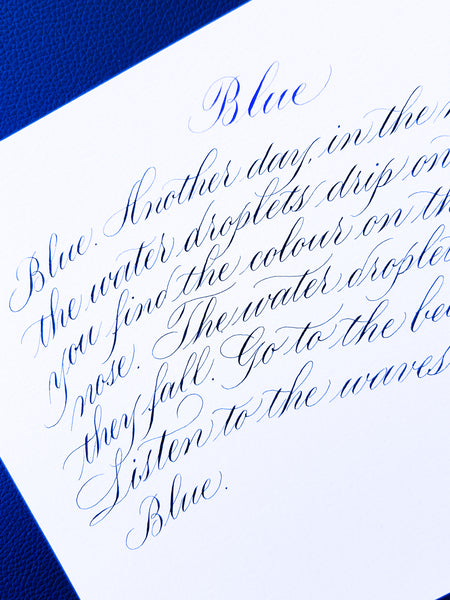 Blue
Blue. Another day, in the
the water droplets drip on
you find the colour on
nose. The water
they fall. Go to the
Listen to the waves
Blue.